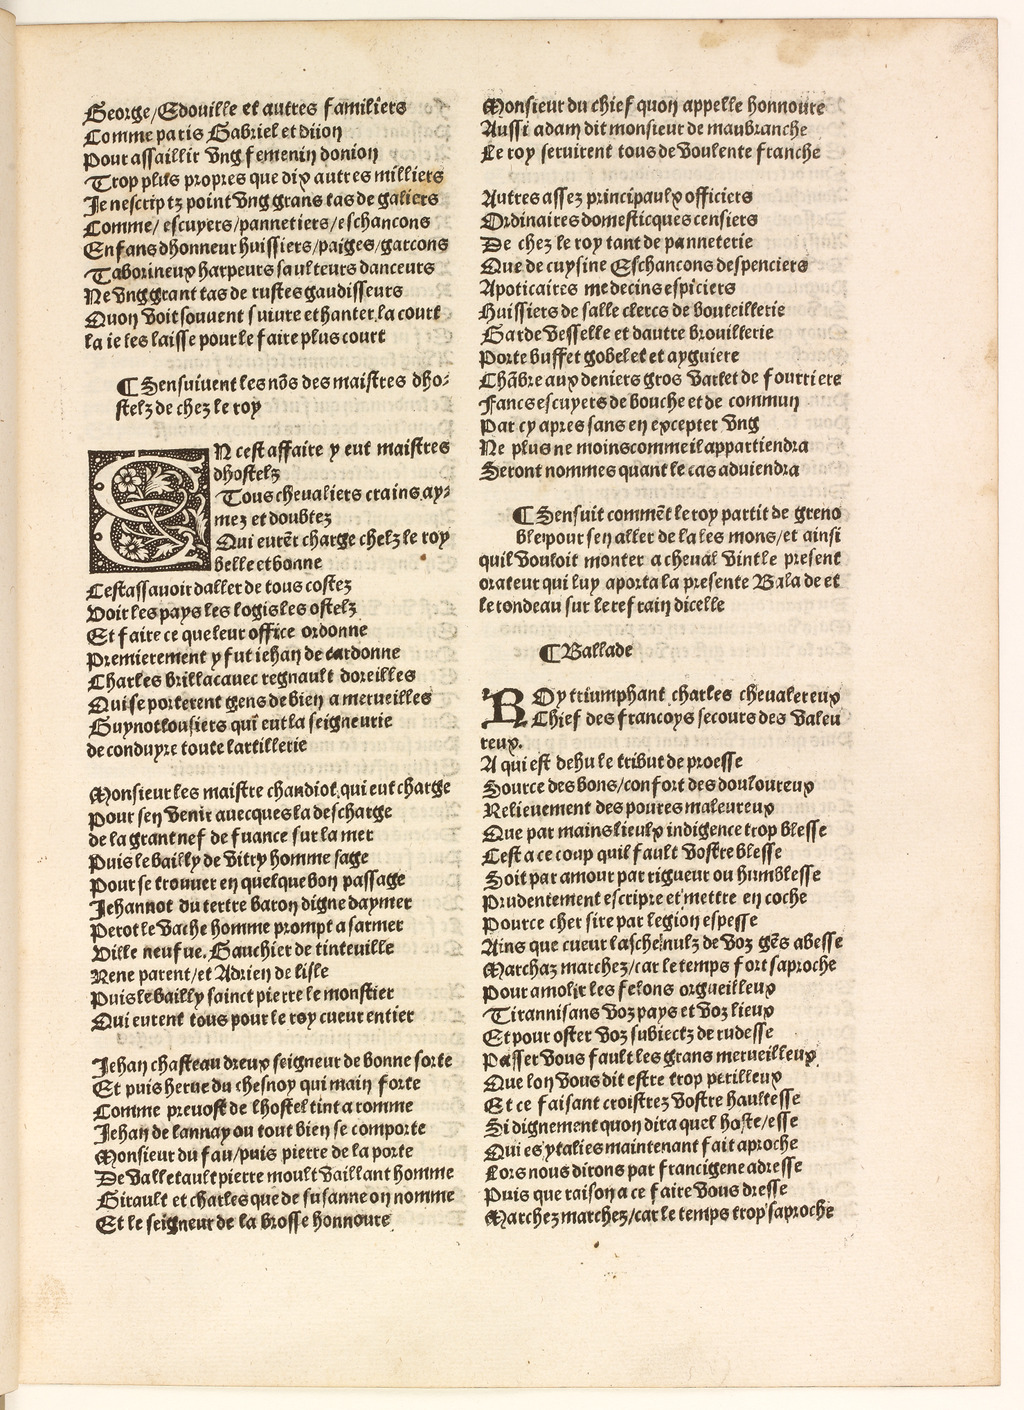 George/Edouille et autres familiers
Comme paris Gabriel et dijon
Pour assaillir vng femenin donion
Trop plus propres que dix autres milliers
Je nescriptz point vng grans tas de galiers
Comme/ escuyers/pannetiers/eschancons
Enfans dhonneur huissiers/paiges/garcons
Taborineux harpeurs saulteurs danceurs
Ne vng grant tas de rustes gaudisseurs
Quon voit souuent suiure et hanter la court
la ie les laisse pour le faire plus court
¶ Sensuiuent les nõs des maistres dho-
stelz de chez le roy
EN cest affaire y eut maistres
dhostelz
Tous cheualiers crains ay-
mez et doubtez
Qui eurẽt charge chelz le roy
belle et bonne
Cestassauoir daller de tous costez
Voir les pays les logis les ostelz
Et faire ce que leur office ordonne
Premierement y fut iehan de cardonne
Charles brillac auec regnault doreilles
Qui se porterent gens de bien a merueilles
Guynot lousiers qui eut la seigneurie
de conduyre toute lartillerie
Monsieur les maistre chandiot qui eut charge
Pour sen venir auecques la descharge
de la grant nef de fuance sur la mer
Puis le bailly de vitry homme sage
Pour se trouuer en quelque bon passage
Jehannot du tertre baron digne daymer
Perot le vache homme prompt a sarmer
Ville neufue. Gauchier de tinteuille
Rene parent/et Adrien de lisle
Puis le bailly sainct pierre le monstier
Qui eurent tous pour le roy cueur entier
Jehan chasteau dreux seigneur de bonne sorte
Et puis herue du chesnoy qui main forte
Comme preuost de lhostel tint a romme
Jehan de lannay ou tout bien se comporte
Monsieur du fau/puis pierre de la porte
De valletault pierre moult vaillant homme
Girault et charles que de susanne on nomme
Et le seigneur de la brosse honnoure
Monsieur du chief quon appelle honnoure
Aussi adam dit monsieur de maubranche
Le roy seruirent tous de voulente franche
Autres assez principaulx officiers
Ordinaires domesticques censiers
De chez le roy tant de panneterie
Que de cuysine Eschancons despenciers
Apoticaires medecins espiciers
Huissiers de salle clercs de bouteillerie
Garde vesselle et dautre brouillerie
Porte buffet gobelet et ayguiere
Chãbre aux deniers gros varlet de fourriere
Fancs escuyers de bouche et de commun
Par cy apres sans en excepter vng
Ne plus ne moins comme il appartiendra
Seront nommes quant le cas aduiendra
¶ Sensuit commẽt le roy partit de greno
ble pour sen aller de la les mons/et ainsi
quil vouloit monter a cheual vint le present
orateur qui luy aporta la presente Balade et
le rondeau sur le refrain dicelle
¶ Ballade
ROy triumphant charles cheualereux
Chief des francoys secours des valeu
reux.
A qui est dehu le tribut de proesse
Source des bons/confort des douloureux
Relieuement des poures maleureux
Que par mains lieulx indigence trop blesse
Cest a ce coup quil fault vostre blesse
Soit par amour par rigueur ou humblesse
Prudentement escripre et mettre en coche
Pource cher sire par legion espesse
Ains que cueur lasche nulz de voz gẽs abesse
Marchaz marchez/car le temps fort saproche
Pour amolir les felons orgueilleux
Tirannisans voz pays et voz lieux
Et pour oster voz subiectz de rudesse
Passer vous fault les grans merueilleux
Que lon vous dit estre trop perilleux
Et ce faisant croistrez vostre haultesse
Si dignement quon dira quel hoste/esse
Qui es ytalies maintenant fait aproche
Lors nous dirons par francigene adresse
Puis que raison a ce faire vous dresse
Marchez marchez/car le temps trop saproche